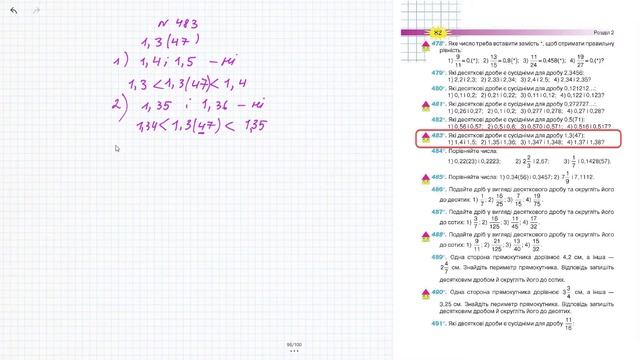 N 483
1,3(47)
1) 1,4 і 1,5 – ні
1,3 < 1,3(47) < 1,4
2) 1,35 і 1,36 – ні
1,34 < 1,3(47) < 1,35
95/100
82
Розділ 2
478°. Яке число треба вставити замість *, щоб отримати правильну
рівність:
1) 9/11 = 0,(*); 2) 13/15 = 0,8(*); 3) 11/24 = 0,458(*); 4) 19/27 = 0,(*)?
479°. Які десяткові дроби є сусідніми для дробу 2,3456:
1) 2,2 і 2,3; 2) 2,33 і 2,34; 3) 2,4 і 2,5; 4) 2,34 і 2,35?
480°. Які десяткові дроби є сусідніми для дробу 0,121212...:
1) 0,1 і 0,2; 2) 0,21 і 0,22; 3) 0,11 і 0,12; 4) 0,122 і 0,123?
481°. Які десяткові дроби є сусідніми для дробу 0,272727...:
1) 0,26 і 0,27; 2) 0,1 і 0,2; 3) 0,27 і 0,28; 4) 0,27 і 0,28?
482°. Які десяткові дроби є сусідніми для дробу 0,5(71):
1) 0,56 і 0,57; 2) 0,5 і 0,6; 3) 0,570 і 0,571; 4) 0,516 і 0,517?
483°. Які десяткові дроби є сусідніми для дробу 1,3(47):
1) 1,4 і 1,5; 2) 1,35 і 1,36; 3) 1,347 і 1,348; 4) 1,37 і 1,38?
484°. Порівняйте числа:
1) 0,22(23) і 0,2223; 2) 2 2/3 і 2,67; 3) 1/7 і 0,1428(57).
485°. Порівняйте числа: 1) 0,34(56) і 0,3457; 2) 7 1/9 і 7,1112.
486°. Подайте дріб у вигляді десяткового дробу та округліть його
до десятих: 1) 1/7; 2) 16/25; 3) 7/15; 4) 19/75.
487°. Подайте дріб у вигляді десяткового дробу та округліть його
до сотих: 1) 3/7; 2) 16/125; 3) 11/45; 4) 17/32.
488°. Подайте дріб у вигляді десяткового дробу та округліть його
до сотих: 1) 9/11; 2) 21/125; 3) 13/40; 4) 15/32.
489°. Одна сторона прямокутника дорівнює 4,2 см, а інша —
2 4/7 см. Знайдіть периметр прямокутника. Відповідь запишіть
десятковим дробом й округліть його до сотих.
490°. Одна сторона прямокутника дорівнює 3 3/4 см, а інша —
3,25 см. Знайдіть периметр прямокутника. Відповідь запишіть
десятковим дробом й округліть його до сотих.
491°. Які десяткові дроби є сусідніми для дробу 11/16: